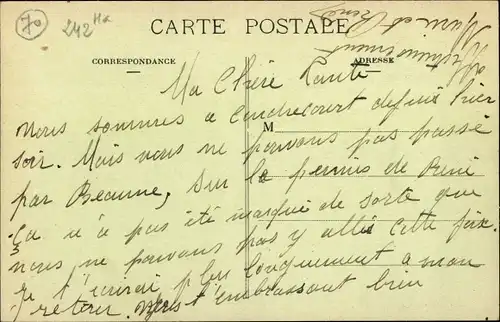 70
242 Ha
CARTE POSTALE
CORRESPONDANCE
ADRESSE
M
Ma Chère Tante
Nous sommes a Cendrecourt depuis hier
soir. Mais nous ne pouvons pas passé
par Beaune, sur la permis de René
ça n'a pas été marqué de sorte que
nous ne pouvons pas y allé cette fois.
Je t'écrirai plus longuement a mon
retour. Nous t'embrassons bien
affectueusement
et René